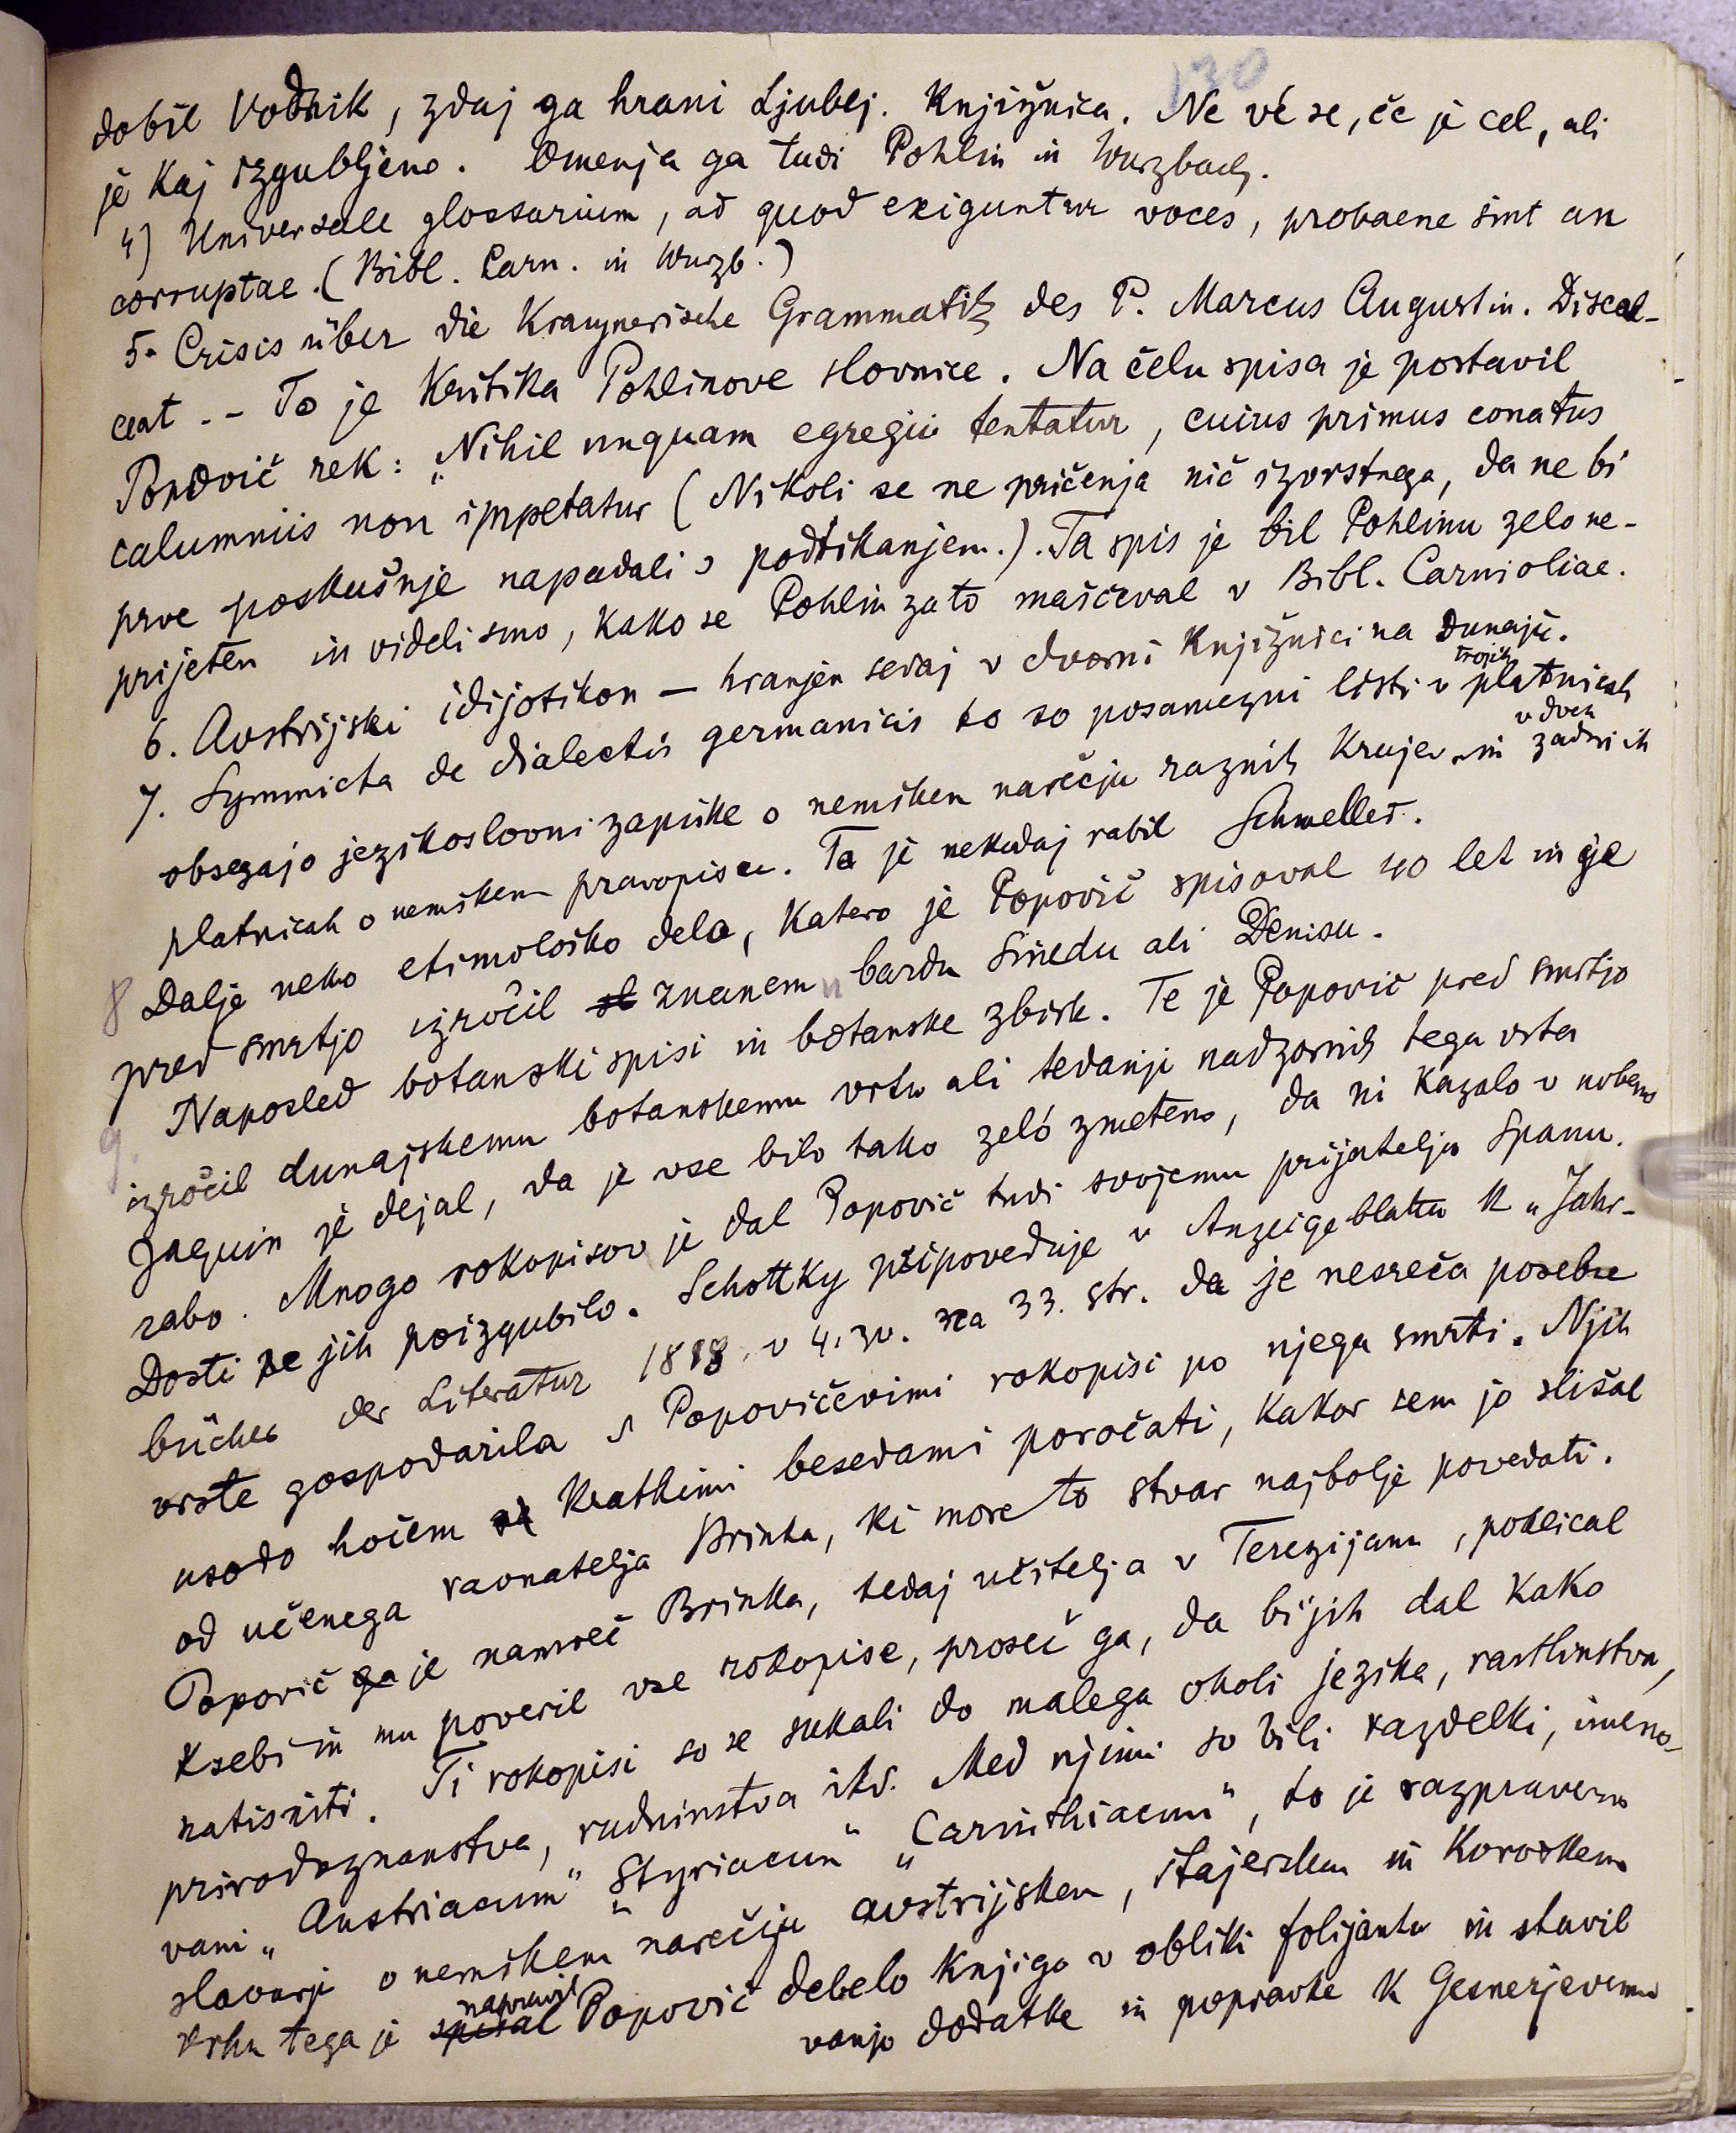 130
dobil Vodnik, zdaj ga hrani Ljublj. Knjižnica. Ne vé se, če je cel, ali
je kaj izgubljeno. Omenja ga tudi Pohlin in Wurzbach.
4) Universale glossarium, ad quod exiguntur voces, probaene sint an
corruptae. (Bibl. Carn. in Wurzb.)
5. Crisis über die Kraynerische Grammatik des P. Marcus Augustin. Discal-
ceat. - To je kritika Pohlinove slovnice. Na čelu spisa je postavil
Popovič rek: „Nihil unquam egregii tentatur, cuius primus conatus
calumniis non impetatur (Nikoli se ne pričenja nič izvrstnega, da ne bi
prve poskušnje napadali s podtikanjem.). Ta spis je bil Pohlinu zelo ne-
prijeten in videli smo, kako se Pohlin zato maščeval v Bibl. Carnioliae.
6. Avstrijski idijotikon — hranjen sedaj v dvorni knjižnici na Dunaju.
7. Symmicta de dialectis germanicis to so posamezni listi v trojih platnicah
obsegajo jezikoslovni zapiske o nemškem narečju raznih krajev in v dveh zadnjih
platnicah o nemškem pravopisu. Ta je nekdaj rabil Schmeller.
8 Dalje neko etimološko delo, katero je Popovič spisoval 40 let in je
pred smrtjo izročil znanemu bardu Sinedu ali Denisu.
9. Naposled botanski spisi in botanske zbirk. Te je Popovič pred smrtjo
izročil dunajskemu botanskemu vrtu ali tedanji nadzornik tega vrta
Jaquin je dejal, da je vse bilo tako zeló zmeteno, da ni kazalo v nobeno
rabo. Mnogo rokopisov je dal Popovič tudi svojemu prijatelju Spanu.
Dosti se jih poizgubilo. Schottky pripoveduje v Anzeigeblattu k „Jahr-
bücher der Literatur 1818 v 4. zv. na 33. str. da je nesreča posebne
vrste gospodarila s Popovičevimi rokopisi po njega smrti. Njih
usodo hočem kratkimi besedami poročati, kakor sem jo slišal
od učenega ravnatelja Brinka, ki more to stvar najbolje povedati.
Popovič je namreč Brinka, tedaj učitelja v Terezijanu, poklical
k sebi in mu poveril vse rokopise, proseč ga, da bi jih dal kako
natisniti. Ti rokopisi so se sukali do malega okoli jezika, rastlinstva,
prirodoznanstva, rudninstva itd. Med njimi so bili razdelki, imeno-
vani „Austriacum" „Styriacum" „Carinthiacum", to je razpraverno
slovarji o nemškem narečju avstrijskem, štajerskem in koroškem
vrhu tega je napravil Popovič debelo knjigo v obliki folijanta in stavil
vanjo dodatke in popravke k Gesnerjevemu